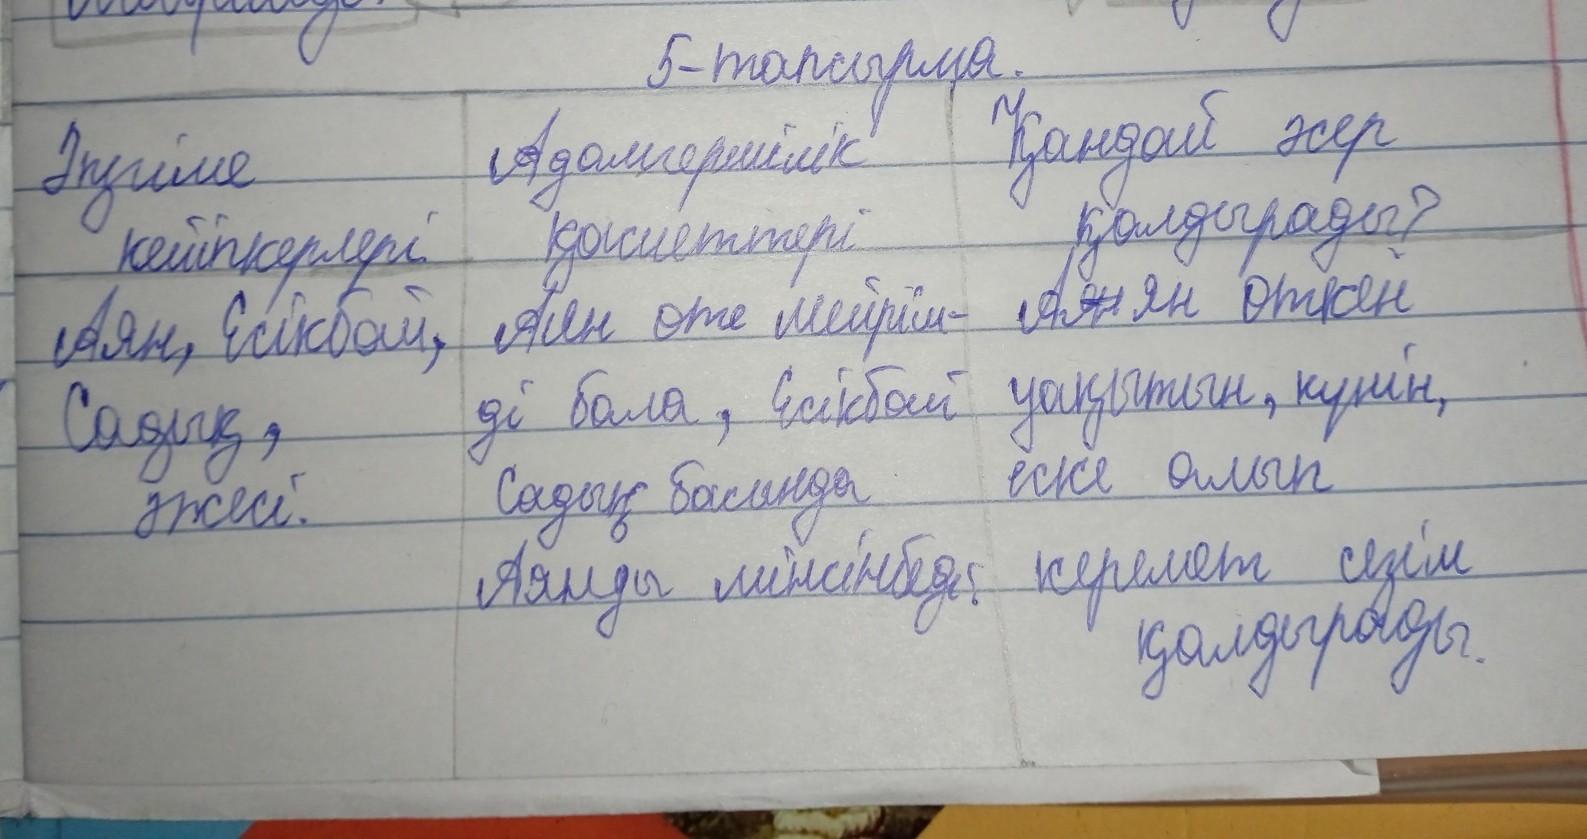 5-тапсырма.
Әңгіме
кейіпкерлері
Адамгершілік
қасиеттері
Қандай әсер
қалдырады?
Аян, Есікбай,
Садық,
әжесі.
Аян өте мейірім-
ді бала, Есікбай
Садық басында
Аянды мінсінбеді;
Аян өткен
уақытын, күнін,
еске алып
керемет сезім
қалдырады.